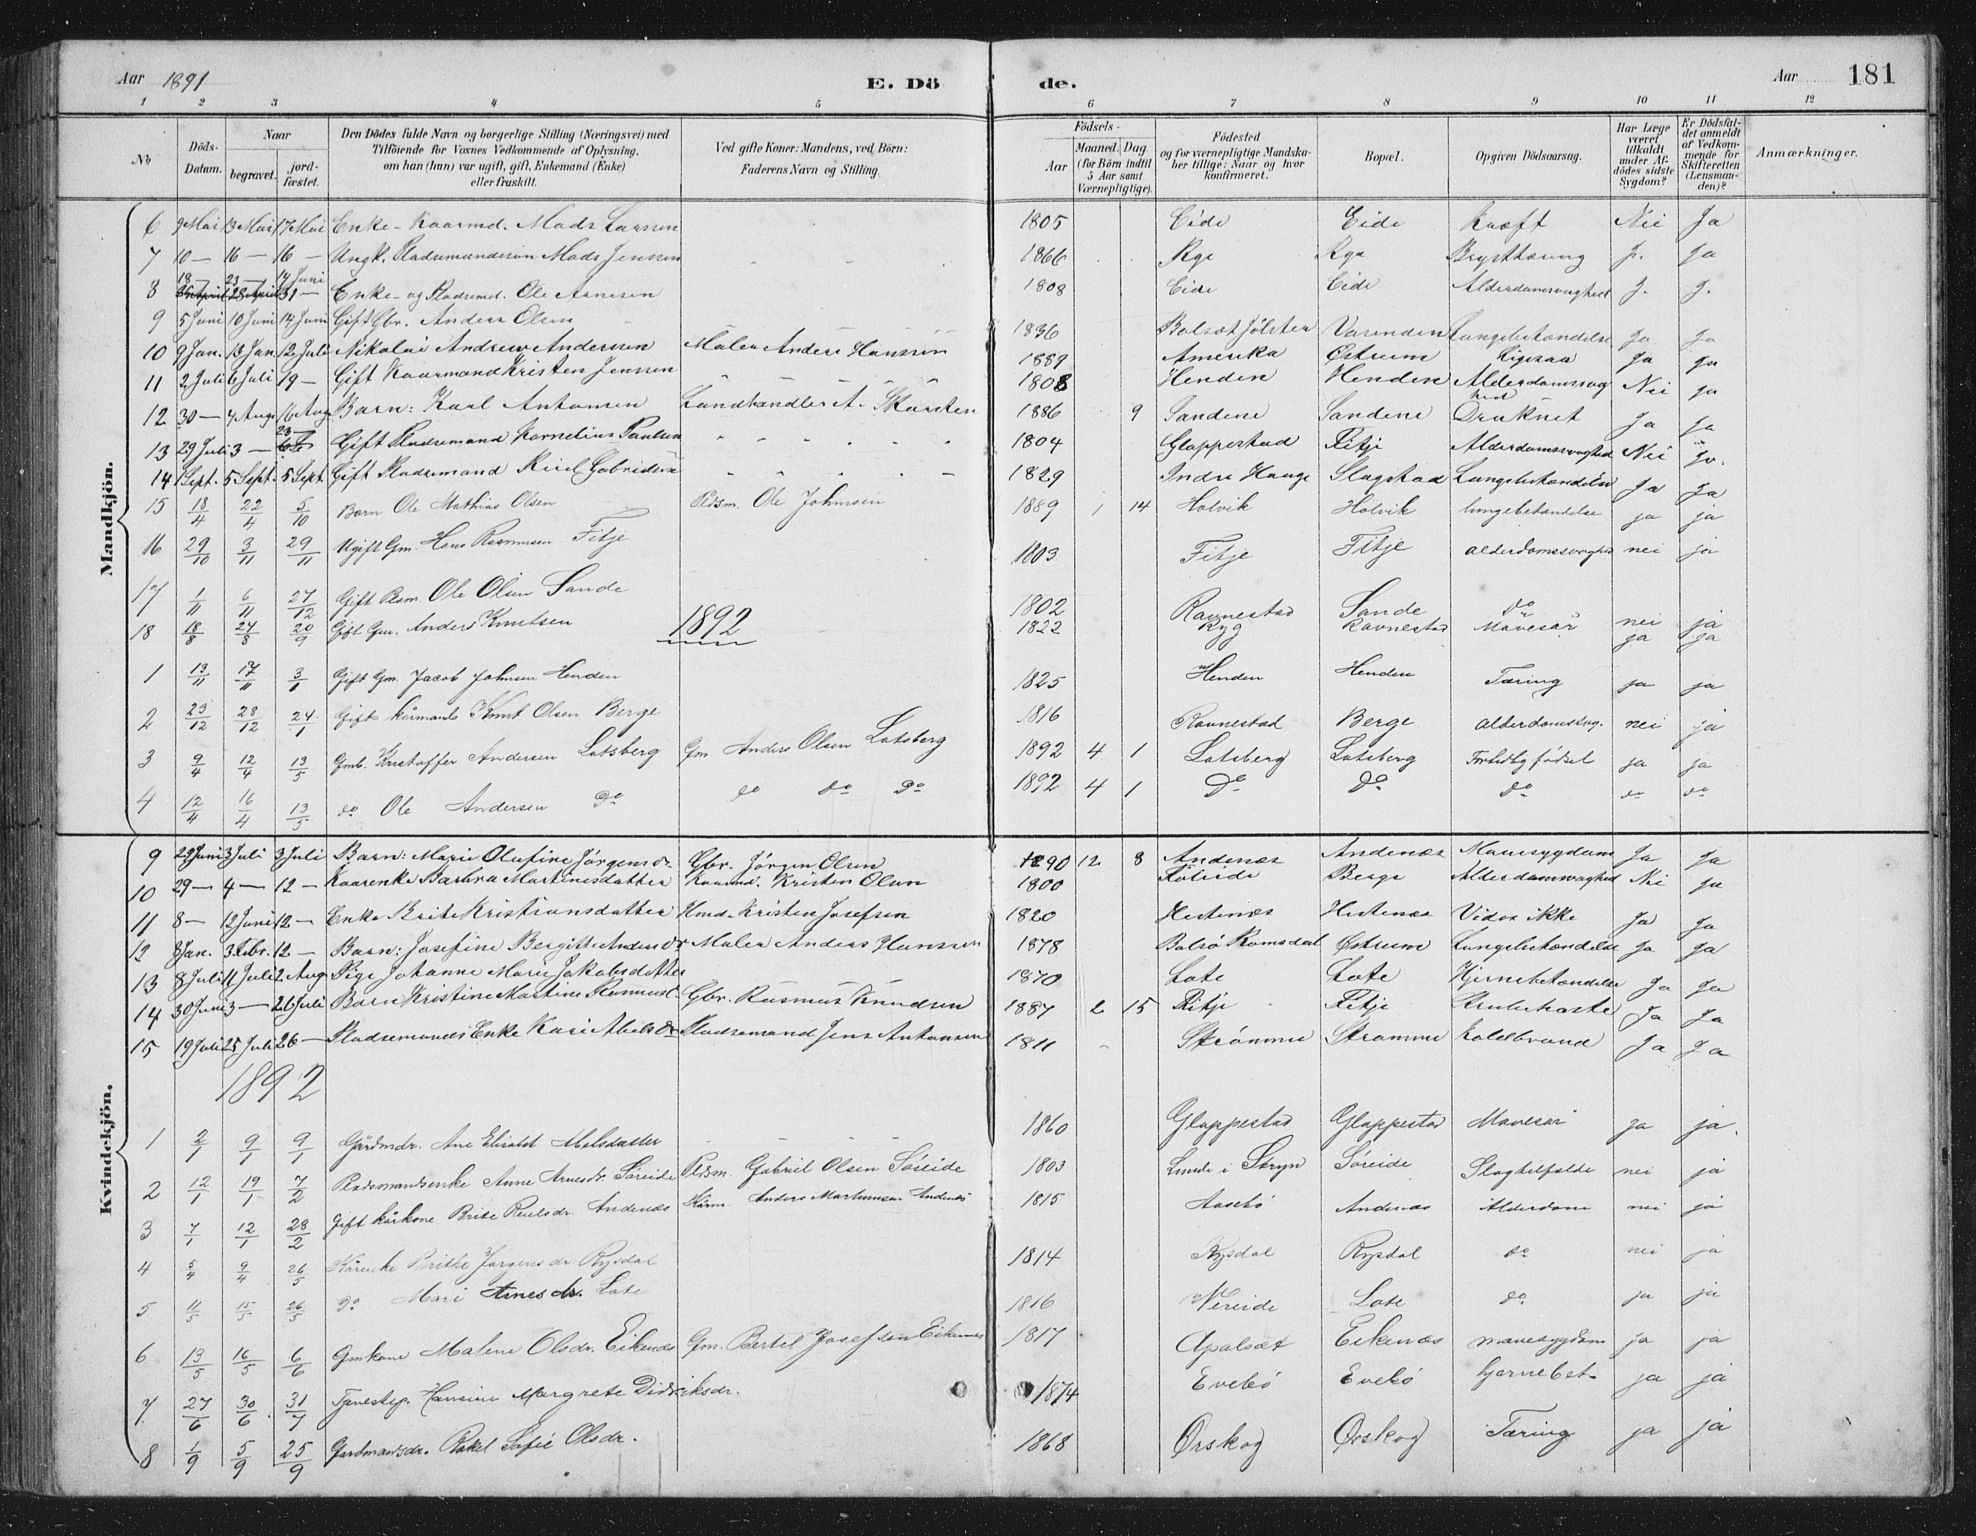 Aar 1891 E. Döde. Aar 181
1 2 3 4 5 6 7 8 9 10 11 12
No
Döds-Datum.
Naar
begravet.
jordfæstet.
Den Dödes fulde Navn og borgerlige Stilling (Næringsvei) med
Tilföiende for Voxnes Vedkommende af Oplysning,
om han (hun) var ugift, gift, Enkemand (Enke)
eller fraskilt.
Ved gifte Koner: Mandens, ved Börn:
Faderens Navn og Stilling.
Födsels-
Aar
Maaned. Dag.
(for Börn indtil
5 Aar samt
Værnepligtige).
Födested
og for værnepligtige Mandskaber tillige: Naar og hvor
konfirmeret.
Bopæl.
Opgiven Dödsaarsag.
Har Læge
været
tilkaldt
under Afdödes sidste
Sygdom?
Er Dödsfaldet anmeldt
af Vedkommende for
Skifteretten
(Lensmanden)?
Anmærkninger.
Mandkjön.
6 9 Mai 13 Mai 17 Mai Enke-Kaarmd. Mads Larsen 1805 Eide Eide Kræft Nei Ja
7 10 — 16 — 16 — Ungk. Pladsemandssön Mads Jensen 1866 Ryg Ryg Brysttæring J. Ja
8 18 — 23 — 14 Juni Enke- og Pladsemd. Ole Arnesen 1808 Eide Eide Alderdomssvaghed J. J.
9 5 Juni 10 Juni 14 Juni Gift Gbr. Anders Olsen 1836 Bolsæt Jölster Lungebetændelse Ja Ja
10 9 Jan. 13 Jan. 12 Juli Nikolai Andreas Anderssen Maler Anders Hanssen 1889 Amerika Østrum Ligesaa Ja Ja
11 2 Juli 6 Juli 19 — Gift Kaarmand Kristen Jenssen 1808 Henden Henden Alderdomssvaghed Nei Ja
12 30 — 4 Aug. 16 Aug. Barn: Karl Antonsen Landhandler A. Skarsten 1886 9 Sandene Sandene Druknet Ja Ja
13 29 Juli 3 — 23 — Gift Pladsemand Kornelius Paulsen 1804 Gloppestad Fitje Alderdomssvaghed Nei Ja
14 1 Sept. 5 Sept. 5 Sept. Gift Pladsemand Gabrielsen 1829 Indre Hauge Slagstad Lungebetændelse Ja Ja
15 18/4 22/4 5/10 Barn Ole Mathias Olsen Pldsm. Ole Johnsen 1889 1 14 Holvik Holvik lungebetændelse ja ja
16 29/10 3/11 29/11 Ugift Gm. Hans Rasmussen Fitje 1803 Fitje Fitje alderdomssvaghed nei ja
17 1/11 6/11 27/12 Gift Plsm. Ole Olsen Sande 1802 Ravnestad Sande do nei ja
18 18/8 24/8 20/9 Gift Gm. Anders Knutsen 1822 Ryg Ravnestad Mavesår ja ja
1892
1 13/11 17/11 3/1 Gift Gm. Jacob Johnsen Henden 1825 Henden Henden Tæring ja ja
2 23/12 28/12 24/1 Gift kårmand Knut Olsen Berge 1816 Ravnestad Berge alderdomssvag. nei ja
3 9/4 12/4 13/5 Gmb. Kristoffer Andersen Lotsberg Gm Anders Olsen Lotsberg 1892 4 1 Lotsberg Lotsberg Fortidlig födsel ja ja
4 12/4 16/4 13/5 do Ole Andersen Do do do Do 1892 4 1 Do Do Do do do
Kvindekjön.
9 29 Juni 3 Juli 3 Juli Barn: Marie Olufine Jörgensdr. Gbr. Jörgen Olsen 1890 12 8 Andenæs Andenæs Mavesygdom Ja Ja
10 29 — 4 — 12 — Kaarenke Barbra Martinesdatter Kaarmd. Kristen Olsen 1800 Berge Alderdomssvaghed Nei Ja
11 8 — 12 Juni 12 — Enke Brite Kristiansdatter Hmd. Kristen Josefsen 1820 Hestenæs Hestenæs Vides ikke Ja Ja
12 8 Jan. 3 Febr. 12 — Barn: Josefine Bergitte Andersdr. Maler Anders Hanssen 1878 Bolsö Romsdal Østrum Lungebetændelse Ja Ja
13 8 Juli 11 Juli 2 Aug. Pige Johanne Marie Jakobsdatter 1870 Lote Lote Hjernebetændelse Ja Ja
14 30 Juni 3 — 26 Juli Barn Kristine Martine Rasmusd. Gbr. Rasmus Knudsen 1887 2 15 Fitje Fitje Strubehoste Ja Ja
15 19 Juli 25 Juli 26 — Pladsemands Enke Kari Abelsdr. Pladsemand Jens Antonsen 1811 Strömme Strömme Koldbrand Ja Ja
1892
1 2/1 9/1 9/1 Gårdmdr. Ane Elisabt Abelsdatter 1860 Gloppestad Gloppestad Mavesår ja ja.
2 12/1 19/1 7/2 Pladsmandsenke Anne Arnesdr. Söreide Pldsm. Gabriel Olsen Söreide 1803 Lunde i Stryn Söreide Slagtilfælde nei ja
3 7/1 12/1 28/2 Gift kårkone Brite Paulsdr. Andenæs Kårm. Anders Martinusen Andenæs 1815 Aasebö Andenæs Alderdom nei ja
4 5/4 9/4 26/5 Kårenke Brithe Jörgensdr. Rysdal 1814 Rysdal Rysdal do nei ja
5 11/5 15/5 26/5 Do Mari Arnesdr. Lote 1816 Nereide Lote do ja ja
6 13/5 16/5 6/6 Gmkone Malene Olsdr. Eikenæs Gm. Bertel Josefsen Eikenæs 1817 Apalset Eikenæs mavesygdom ja ja
7 27/6 30/6 31/7 Tjenestep. Hansine Margrete Didriksdr. 1874 Evebö Evebö hjernebet. ja ja
8 1/9 5/9 25/9 Gardmandsdr. Rakel Sofie Olsdr. 1868 Ørskog Ørskog Tæring ja ja